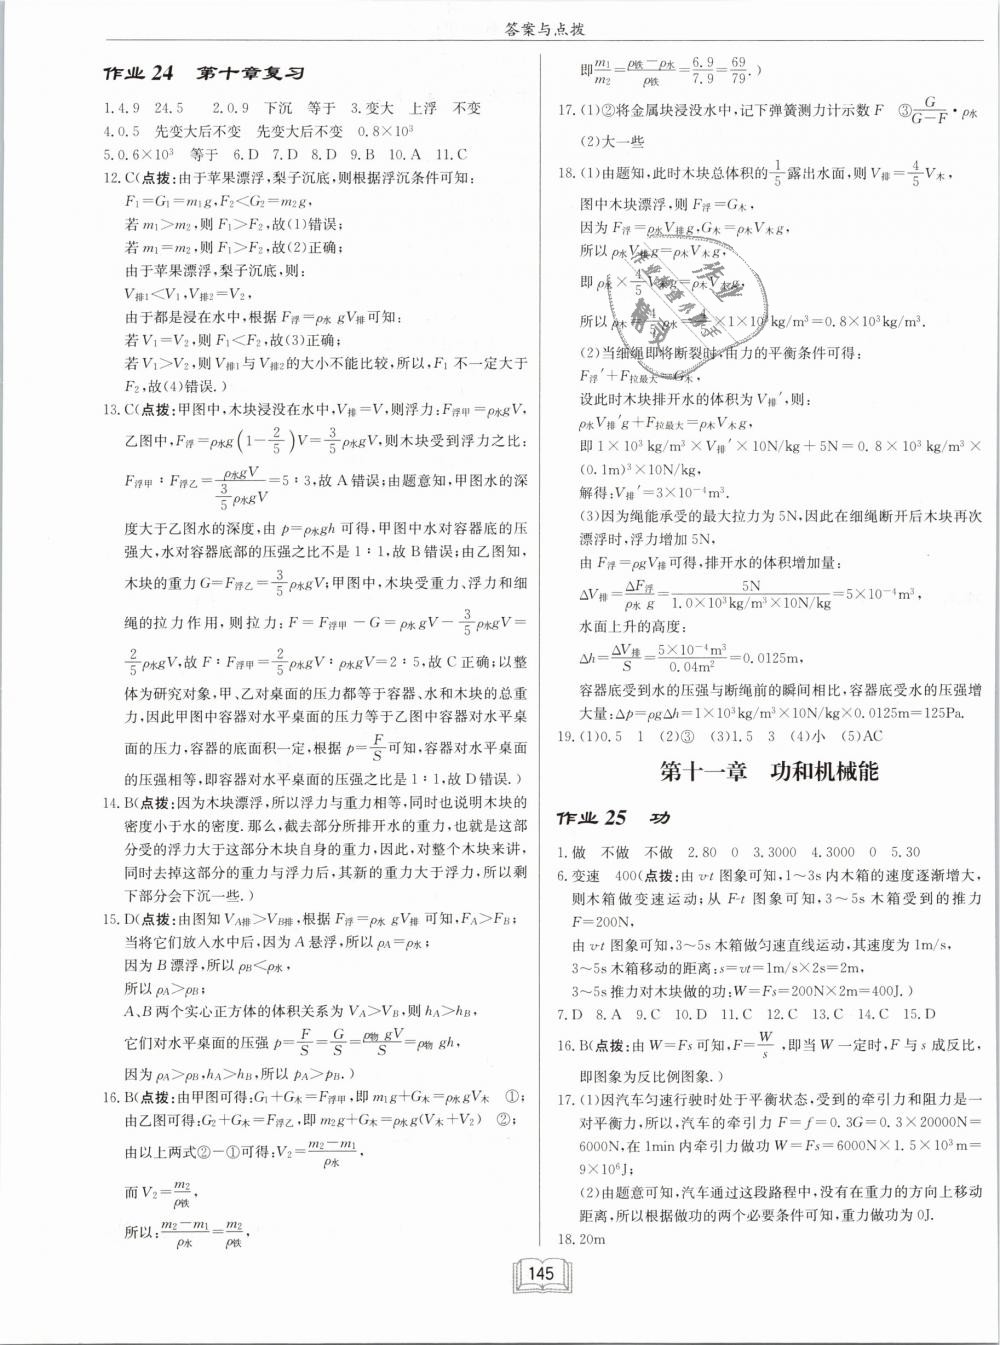 答案与点拨
作业 24 第十章复习
1.4.9 24.5 2.0.9 下沉 等于 3.变大 上浮 不变
4.0.5 先变大后不变 先变大后不变 0.8×10³
5.0.6×10³ 等于 6.D 7.D 8.D 9.B 10.A 11.C
12.C(点拨:由于苹果漂浮,梨子沉底,则根据浮沉条件可知:
F₁=G₁=m₁g,F₂<G₂=m₂g,
若 m₁>m₂,则 F₁>F₂,故(1)错误;
若 m₁=m₂,则 F₁>F₂,故(2)正确;
由于苹果漂浮,梨子沉底,则:
V排1<V₁,V排2=V₂,
由于都是浸在水中,根据 F浮=ρ水 gV排可知:
若 V₁=V₂,则 F₁<F₂,故(3)正确;
若 V₁>V₂,则 V排1与 V排2的大小不能比较,所以,F₁ 不一定大于
F₂,故(4)错误.)
13.C(点拨:甲图中,木块浸没在水中,V排=V,则浮力:F浮甲=ρ水gV,
乙图中,F浮=ρ水g(1-2/5)V=3/5ρ水gV,则木块受到浮力之比:
F浮甲:F浮乙=ρ水gV/(3/5ρ水gV)=5:3,故 A 错误;由题意知,甲图水的深
度大于乙图水的深度,由 p=ρ水gh 可得,甲图中水对容器底的压
强大,水对容器底部的压强之比不是 1:1,故 B 错误;由乙图知,
木块的重力 G=F浮乙=3/5ρ水gV;甲图中,木块受重力、浮力和细
绳的拉力作用,则拉力:F=F浮甲-G=ρ水gV-3/5ρ水gV=
2/5ρ水gV,故 F:F浮甲=2/5ρ水gV:ρ水gV=2:5,故 C 正确;以整
体为研究对象,甲、乙对桌面的压力都等于容器、水和木块的总重
力,因此甲图中容器对水平桌面的压力等于乙图中容器对水平桌
面的压力,容器的底面积一定,根据 p=F/S可知,容器对水平桌面
的压强相等,即容器对水平桌面的压强之比是 1:1,故 D 错误.)
14.B(点拨:因为木块漂浮,所以浮力与重力相等,同时也说明木块的
密度小于水的密度.那么,截去部分所排开水的重力,也就是这部
分受的浮力大于这部分木块自身的重力,因此,对整个木块来讲,
同时去掉这部分的重力与浮力后,其新的重力大于浮力,所以剩
下部分会下沉一些.)
15.D(点拨:由图知 VA排>VB排,根据 F浮=ρ水 gV排 可知,FA>FB;
当将它们放入水中后,因为 A 悬浮,所以 ρA=ρ水;
因为 B 漂浮,所以 ρB<ρ水,
所以 ρA>ρB;
A、B 两个实心正方体的体积关系为 VA>VB,则 hA>hB,
它们对水平桌面的压强 p=F/S=G/S=ρ物gV/S=ρ物 gh,
因为 ρA>ρB,hA>hB,所以 pA>pB.)
16.B(点拨:由甲图可得:G₁+G木=F浮甲,即 m₁g+G木=ρ水gV木 ①;
由乙图可得:G₂+G木=F浮乙,即 m₂g+G木=ρ水g(V木+V₂) ②;
由以上两式②-①可得:V₂=(m₂-m₁)/ρ水,
而 V₂=m₂/ρ铁,
所以:(m₂-m₁)/ρ水=m₂/ρ铁,
即m₁/m₂=(ρ铁-ρ水)/ρ铁=6.9/7.9=69/79.)
17.(1)②将金属块浸没水中,记下弹簧测力计示数 F ③G/(G-F)·ρ水
(2)大一些
18.(1)由题知,此时木块总体积的1/5露出水面,则 V排=4/5V木,
图中木块漂浮,则 F浮=G木,
因为 F浮=ρ水V排g,G木=ρ木V木g,
所以 ρ水V排g=ρ木V木g,
即 ρ水×4/5V木g=ρ木V木g,
所以 ρ木=4/5ρ水=4/5×1×10³kg/m³=0.8×10³kg/m³.
(2)当细绳即将断裂时,由力的平衡条件可得:
F浮′+F拉最大=G木,
设此时木块排开水的体积为 V排′,则:
ρ水V排′g+F拉最大=ρ木V木g,
即 1×10³kg/m³×V排′×10N/kg+5N=0.8×10³kg/m³×
(0.1m)³×10N/kg,
解得:V排′=3×10⁻⁴m³.
(3)因为绳能承受的最大拉力为 5N,因此在细绳断开后木块再次
漂浮时,浮力增加 5N,
由 F浮=ρgV排可得,排开水的体积增加量:
ΔV排=ΔF浮/(ρ水 g)=5N/(1.0×10³kg/m³×10N/kg)=5×10⁻⁴m³,
水面上升的高度:
Δh=ΔV排/S=5×10⁻⁴m³/0.04m²=0.0125m,
容器底受到水的压强与断绳前的瞬间相比,容器底受水的压强增
大量:Δp=ρgΔh=1×10³kg/m³×10N/kg×0.0125m=125Pa.
19.(1)0.5 1 (2)③ (3)1.5 3 (4)小 (5)AC
第十一章 功和机械能
作业 25 功
1.做 不做 不做 2.80 0 3.3000 4.3000 0 5.30
6.变速 400(点拨:由 v-t 图象可知,1～3s 内木箱的速度逐渐增大,
则木箱做变速运动;从 F-t 图象可知,3～5s 木箱受到的推力
F=200N,
由 v-t 图象可知,3～5s 木箱做匀速直线运动,其速度为 1m/s,
3～5s 木箱移动的距离:s=vt=1m/s×2s=2m,
3～5s 推力对木块做的功:W=Fs=200N×2m=400J.)
7.D 8.A 9.C 10.D 11.C 12.C 13.C 14.C 15.D
16.B(点拨:由 W=Fs 可知,F=W/s,即当 W 一定时,F 与 s 成反比,
即图象为反比例图象.)
17.(1)因汽车匀速行驶时处于平衡状态,受到的牵引力和阻力是一
对平衡力,所以,汽车的牵引力 F=f=0.3G=0.3×20000N=
6000N,在 1min 内牵引力做功 W=Fs=6000N×1.5×10³m=
9×10⁶J;
(2)由题意可知,汽车通过这段路程中,没有在重力的方向上移动
距离,所以根据做功的两个必要条件可知,重力做功为 0J.
18.20m
145